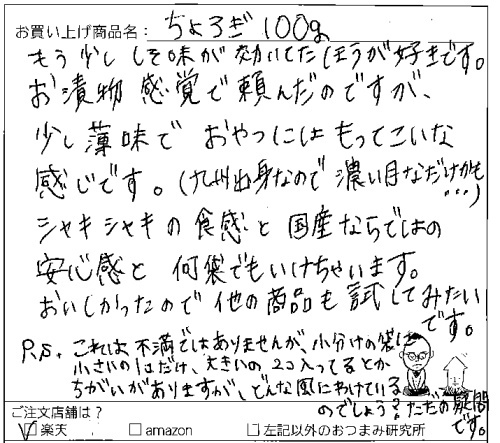 お買い上げ商品名: ちょろぎ 100g
もう少ししそ味が効いてたほうが好きです。
お漬物感覚で頼んだのですが、
少し薄味でおやつにはもってこいな
感じです。(九州出身なので濃い目なだけかも…)
シャキシャキの食感と国産ならではの
安心感と何袋でもいけちゃいます。
おいしかったので他の商品も試してみたい
です。
P.S. これは不満ではありませんが、小分けの袋に
小さいの1コだけ、大きいの2コ入ってるとか
ちがいがありますが、どんな風にわけている
のでしょう?ただの疑問
です。
ご注文店舗は?
☑楽天 □amazon □左記以外のおつまみ研究所